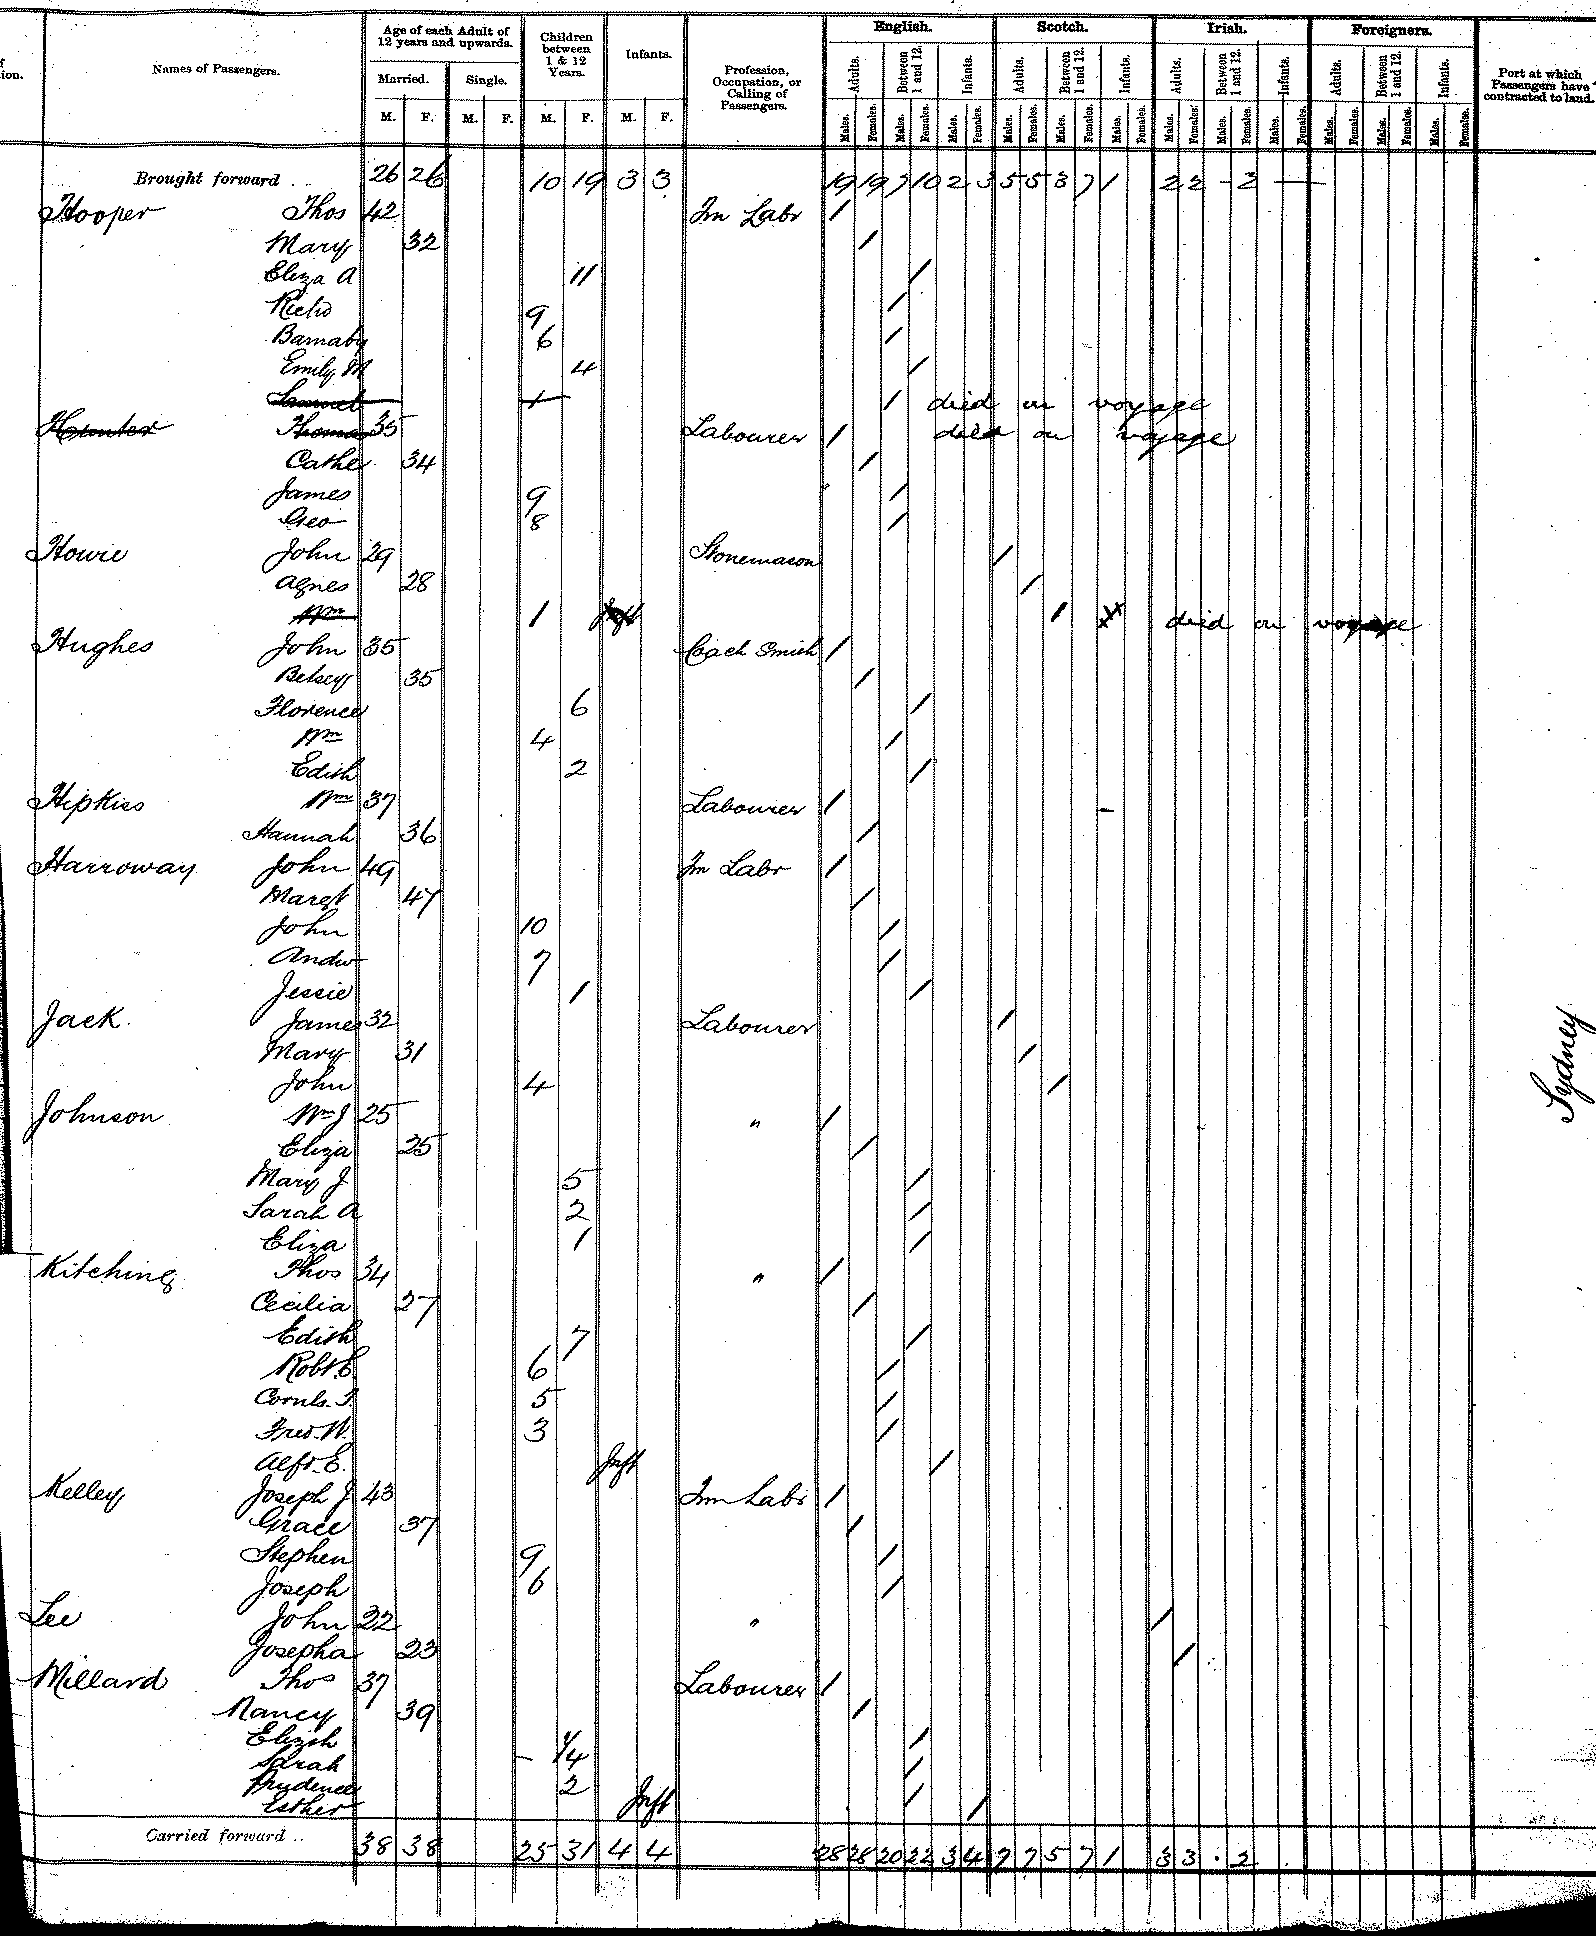 English. Scotch. Irish. Foreigners.
Names of Passengers. Age of each Adult of 12 years and upwards. Children between 1 & 12 Years. Infants. Profession, Occupation, or Calling of Passengers. Port at which Passengers have contracted to land.
Married. Single.
Adults. Between 1 and 12. Infants. Adults. Between 1 and 12. Infants. Adults. Between 1 and 12. Infants. Adults. Between 1 and 12. Infants.
M. F. M. F. M. F. M. F. Males. Females. Males. Females. Males. Females. Males. Females. Males. Females. Males. Females. Males. Females. Males. Females. Males. Females. Males. Females. Males. Females. Males. Females.
Brought forward .. 26 26 10 19 3 3 19 19 7 10 2 3 5 5 3 7 1 2 2 - 2 —
Hooper Thos 42 Fm Labr /
Mary 32 /
Eliza A 11 /
Richd 9 /
Barnaby 6 /
Emily M 4 /
Samuel 1 / died on voyage
Hunter Thomas 35 Labourer / died on voyage
Cathe 34 /
James 9 /
Geo 8 /
Howie John 29 Stonemason /
Agnes 28 /
Wm 1 Inft / died on voyage
Hughes John 35 Coach Smith /
Betsey 35 /
Florence 6 /
Wm 4 /
Edith 2 /
Hipkiss Wm 37 Labourer / -
Hannah 36 /
Harroway John 49 Fm Labr /
Margt 47 /
John 10 /
Andw 7 /
Jessie 1 /
Jack. James 32 Labourer /
Mary 31 /
John 4 /
Johnson Wm J 25 " /
Eliza 25 /
Mary J 5 /
Sarah A 2 /
Eliza 1 /
Kitching Thos 34 " /
Cecilia 27 /
Edith 7 /
Robt E. 6 /
Cornls. T. 5 /
Fred. W. 3 /
Alfd. E. Inft /
Kelley Joseph J 43 Fm Labr /
Grace 37 /
Stephen 9 /
Joseph 6 /
Lee John 22 " /
Josepha 23 /
Millard Thos 37 Labourer /
Nancy 39 /
Elizth 7 /
Sarah - 4 /
Prudence 2 /
Esther Inft /
Carried forward .. 38 38 25 31 4 4 28 28 20 22 3 4 7 7 5 7 1 3 3 . 2
Sydney